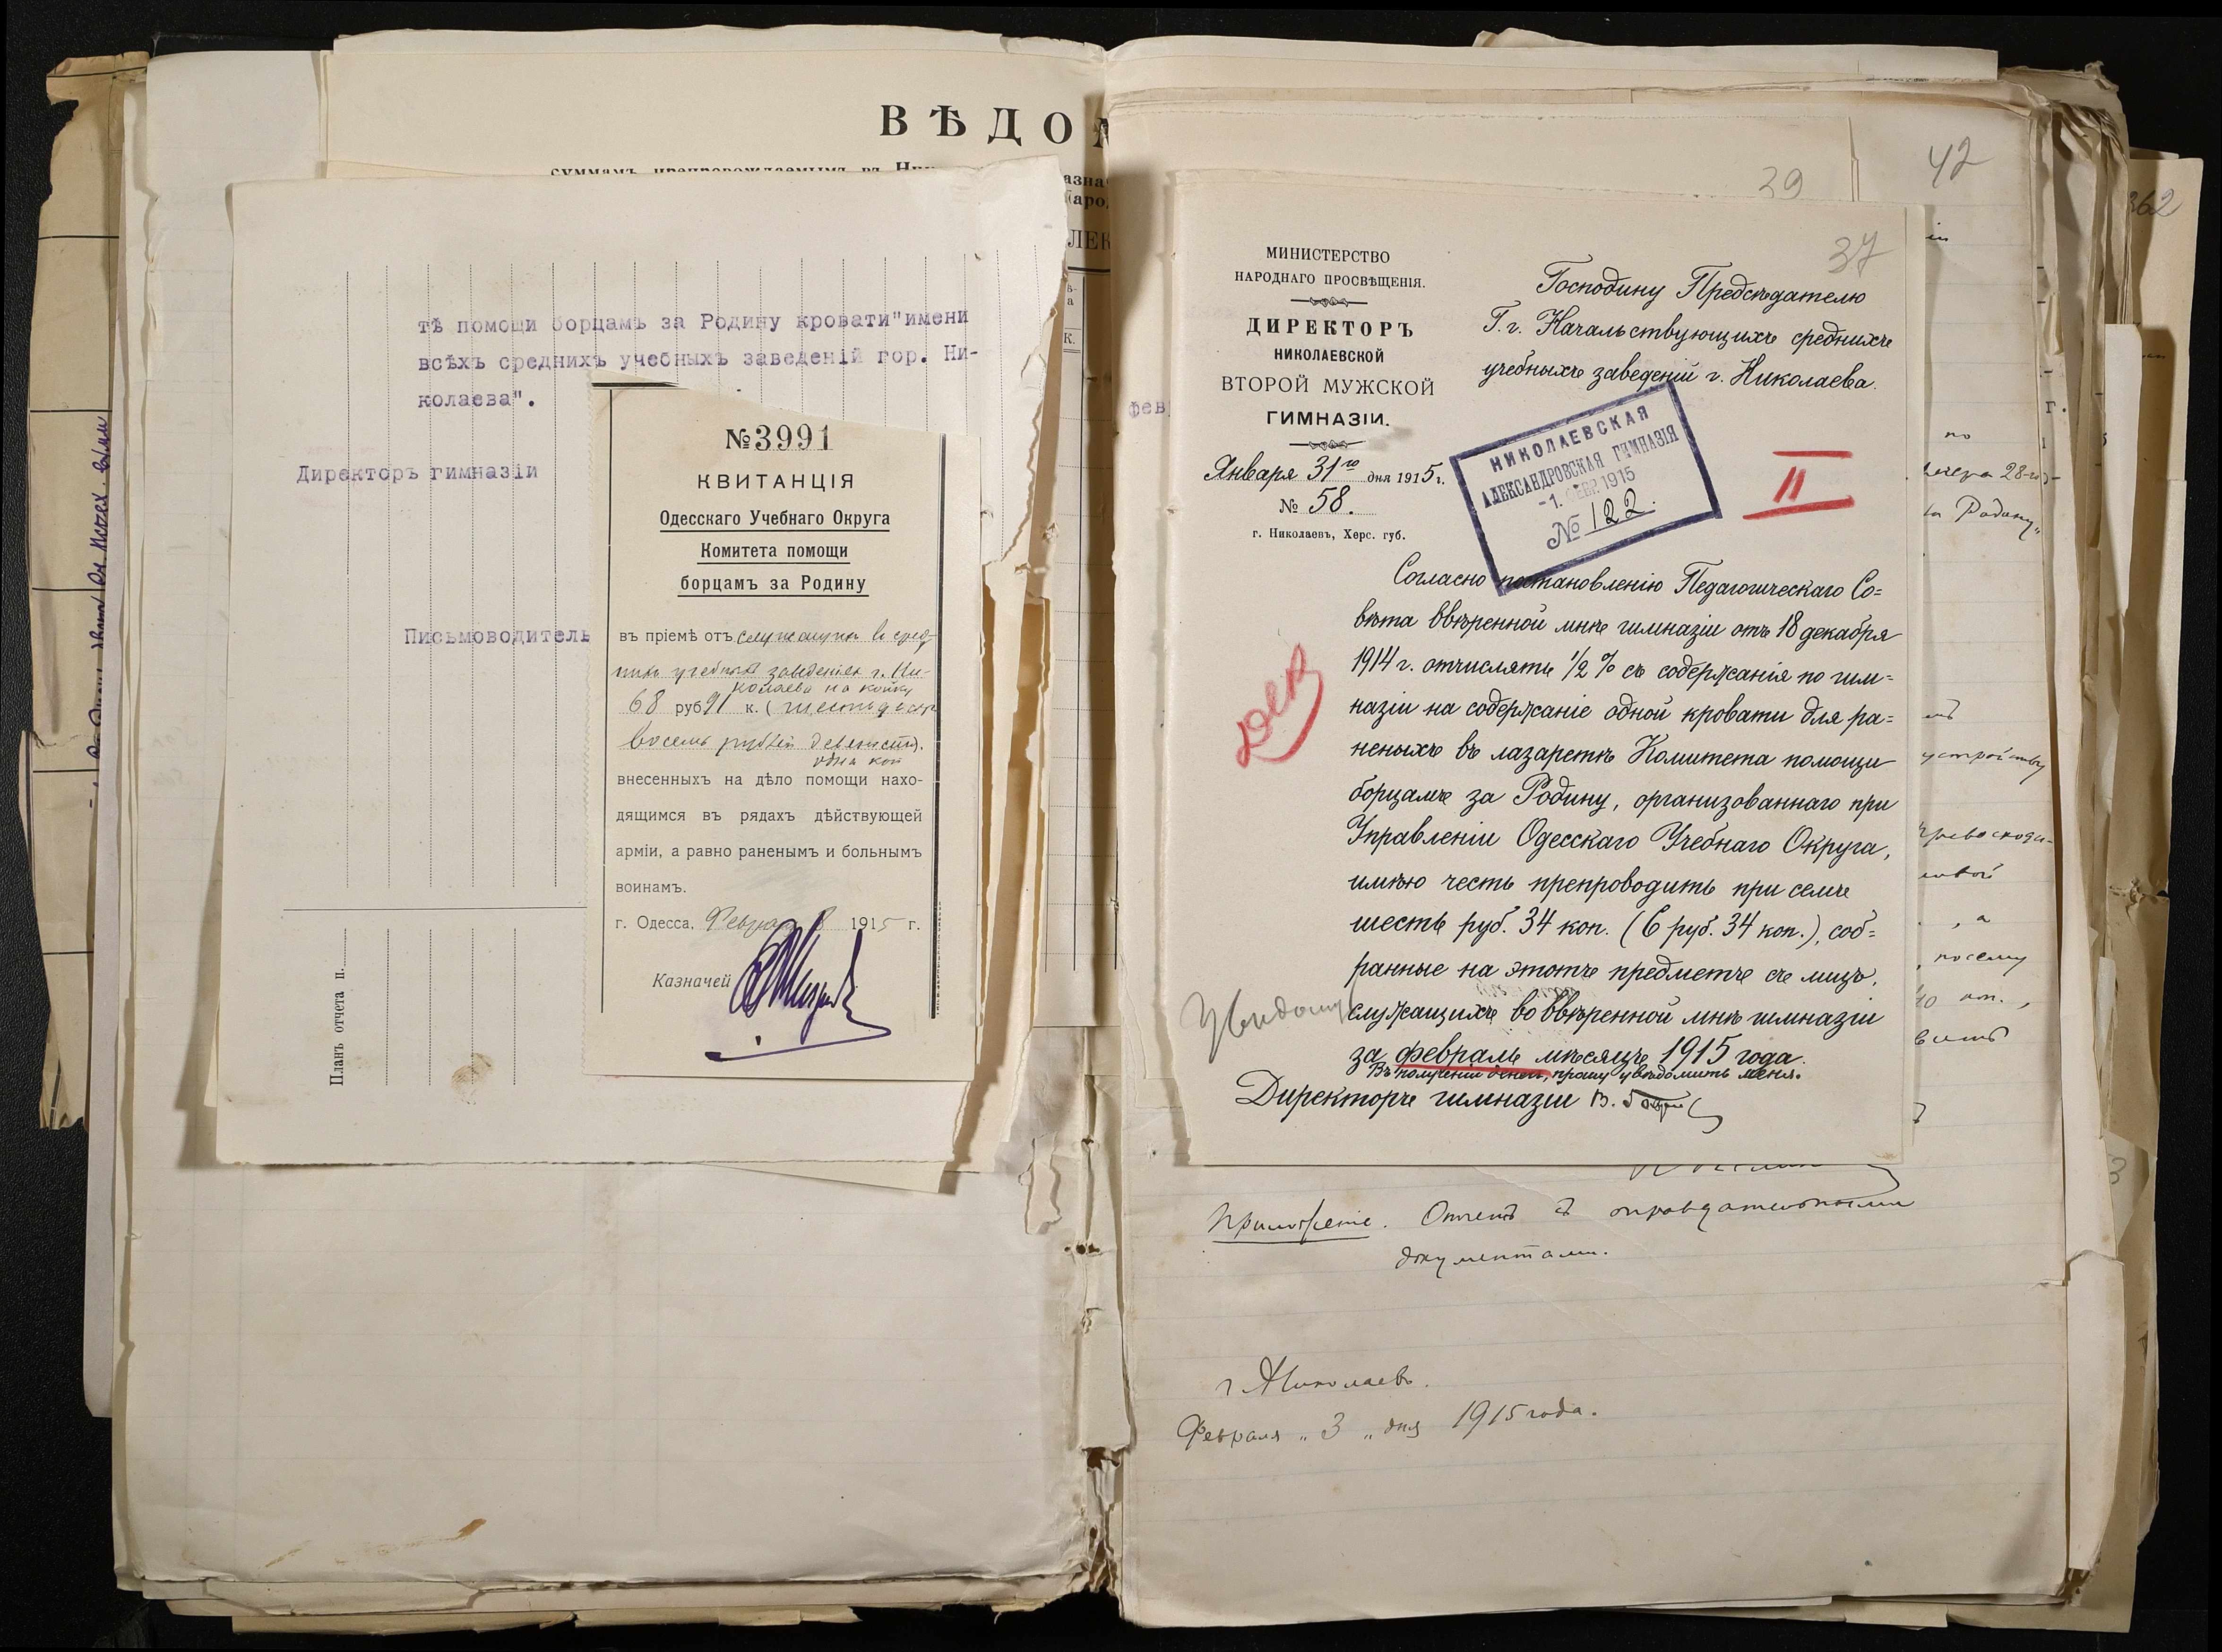 ВѢДО
тѣ помощи борцамъ за Родину кровати"имени
всѣхъ среднихъ учебныхъ заведеній гор. Ни-
колаева".
Директоръ гимназіи
Письмоводитель
Планъ отчета п.
№ 3991
КВИТАНЦІЯ
Одесскаго Учебнаго Округа
Комитета помощи
борцамъ за Родину
въ пріемѣ отъ служащихъ въ сред-
нихъ учебныхъ заведеніях г. Ни-
колаева на койку
68 руб 91 к. (шестьдесят
восемь рублей девяносто
одна коп
внесенныхъ на дѣло помощи нахо-
дящимся въ рядахъ дѣйствующей
арміи, а равно раненымъ и больнымъ
воинамъ.
г. Одесса, 8 1915 г.
Казначей
42
39
37
362
МИНИСТЕРСТВО
НАРОДНАГО ПРОСВѢЩЕНІЯ.
ДИРЕКТОРЪ
НИКОЛАЕВСКОЙ
ВТОРОЙ МУЖСКОЙ
ГИМНАЗІИ.
Января 31го дня 1915 г.
№ 58.
г. Николаевъ, Херс. губ.
Господину Предсѣдателю
Г.г. Начальствующихъ среднихъ
учебныхъ заведеній г. Николаева.
НИКОЛАЕВСКАЯ
АЛЕКСАНДРОВСКАЯ ГИМНАЗІЯ
-1. ФЕВР. 1915
№ 122.
II
Согласно постановленію Педагогическаго Со=
вѣта ввѣренной мнѣ гимназіи отъ 18 декабря
1914 г. отчислять 1/2 % съ содержанія по гим=
назіи на содержаніе одной кровати для ра=
неныхъ въ лазаретѣ Комитета помощи
борцамъ за Родину, организованнаго при
Управленіи Одесскаго Учебнаго Округа,
имѣю честь препроводить при семъ
шесть руб. 34 коп. (6 руб. 34 коп.), соб=
ранные на этотъ предметъ съ лицъ,
служащихъ во ввѣренной мнѣ гимназіи
за февраль мѣсяцъ 1915 года.
Въ полученіи денегъ, прошу увѣдомить меня.
Директоръ гимназіи
Приложеніе. Отчетъ съ оправдательными
документами.
г. Николаевъ.
Февраля „ 3 „ дня 1915 года.